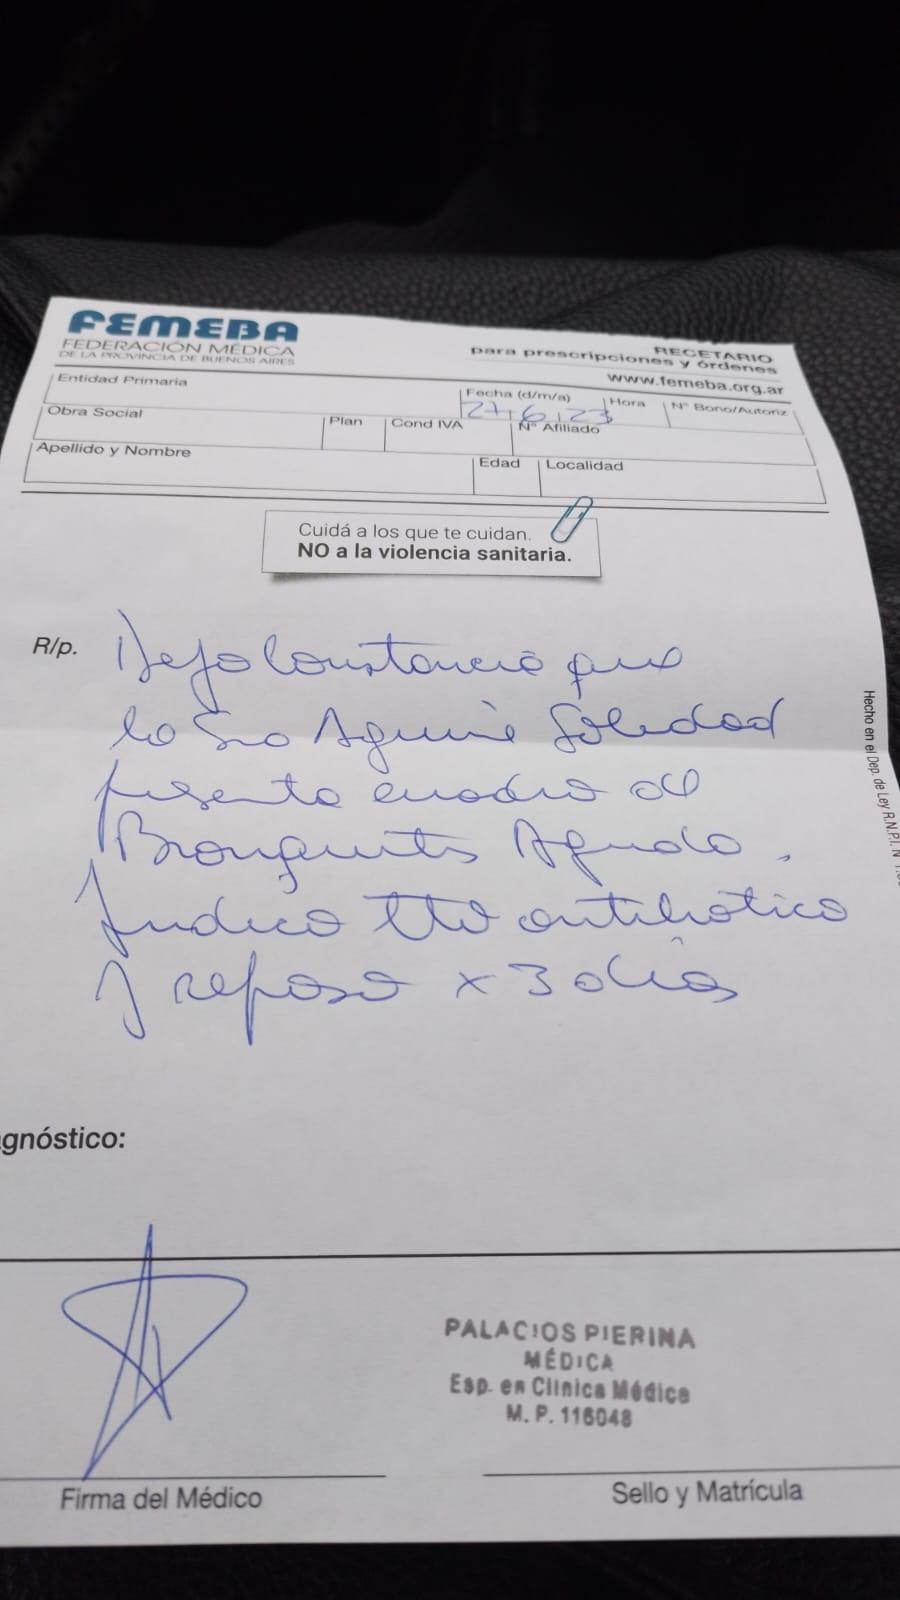 FEMEBA
FEDERACIÓN MÉDICA
DE LA PROVINCIA DE BUENOS AIRES
RECETARIO
para prescripciones y órdenes
www.femeba.org.ar
Entidad Primaria
Fecha (d/m/a)
27,6,23
Hora
N° Bono/Autoriz
Obra Social
Plan
Cond IVA
N° Afiliado
Apellido y Nombre
Edad
Localidad
Cuidá a los que te cuidan.
NO a la violencia sanitaria.
R/p.
Dejo Constancia que
la Sra Aguirre Soledad
presenta cuadro de
Bronquitis Aguda.
Indico tto antibiótico
y reposo x 3 días
Hecho en el Dep. de Ley R.N.P.I. N
gnóstico:
PALACIOS PIERINA
MÉDICA
Esp. en Clínica Médica
M. P. 116048
Firma del Médico
Sello y Matrícula